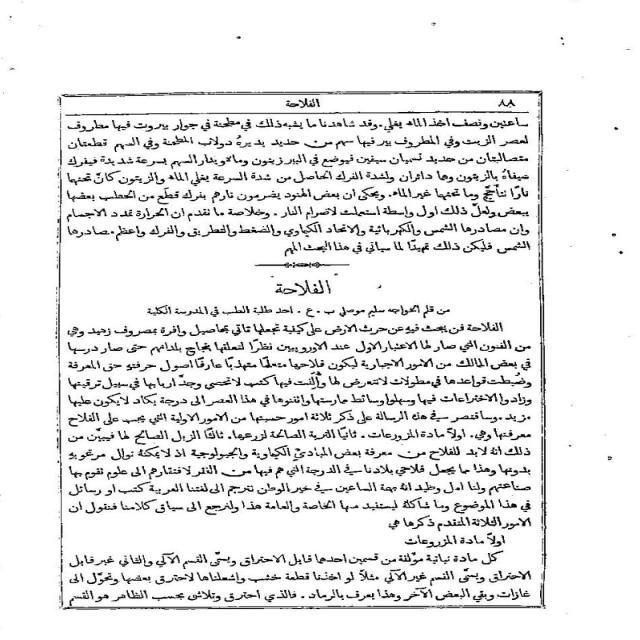 ٨٨ الفلاحة
ساعتين ونصف اخذ الماء يغلي. وقد شاهدنا ما يشبه ذلك في مطحنة في جوار بيروت فيها مظروف
لعصر الزيت وفي المظروف بير فيها سهم من حديد يديره دولاب المطحنة وفي السهم قطعتان
متصالبتان من حديد تسميان سيفين فيوضع في البير زيتون وماء ويدار السهم بسرعة شديدة فيفرك
سيفاه بالزيتون وها دائران ولشدة الفرك الحاصل من شدة السرعة يغلي الماء والزيتون كانّ تحتها
نارًا تتأجّج وما تحتها غير الماء. ويحكى ان بعض الهنود يضرمون نارهم بفرك قطع من الحطب بعضها
ببعض ولعلّ ذلك اول واسطة استعملت لاضرام النار. وخلاصة ما تقدم ان الحرارة تمدد الاجسام
وان مصادرها الشمس والكهربائية والاتحاد الكيماوي والضغط والتطريق والفرك واعظم مصادرها
الشمس فليكن ذلك تمهيدًا لما سياتي في هذا البحث المهم
الفلاحة
من قلم الخواجه سليم موصلي ب. ع. احد طلبة الطب في المدرسة الكلية
الفلاحة فن يبحث فيه عن حرث الارض على كيفية تجعلها تاتي بحاصيل وافرة بمصروف زهيد وهي
من الفنون التي صار لها الاعتبار الاول عند الاوروبيين نظرًا لتعلقها بنجاح بلدانهم حتى صار درسها
في بعض الممالك من الامور الاجبارية ليكون فلاحها متعلمًا متهذبًا عارفًا اصول حرفته حق المعرفة
وضُبطت قواعدها في مطولات لا تتعرض لها وأُلّفت فيها كتب لا تحصى وجدّ اربابها في سبيل ترقيتها
وزادوا الاختراعات فيها وسهلوا وسائط مارستها واتقنوها في هذا العصر الى درجة يكاد لا يكون عليها
مزيد. وساقتصر في هذه الرسالة على ذكر ثلاثة امور حسبتها من الامور الاولية التي يجب على الفلاح
معرفتها وهي. اولًا مادة المزروعات. ثانيًا التربة الصالحة لزرعها. ثالثًا الزبل الصالح لها فيبيّن من
ذلك انه لابد للفلاح من معرفة بعض المبادئ الكيماوية والجيولوجية اذ لا يمكنه نوال مرغوبه
بدونها وهذا ما يجعل فلاحي بلادنا في الدرجة التي هم فيها من الفقر لافتقارهم الى علوم تقوم بها
صناعتهم ولنا امل وطيد انه بهمة الساعين في خير الوطن تترجم الى لغتنا العربية كتب او رسائل
في هذا الموضوع وما شاكله ليستفيد منها الخاصة والعامة هذا ولنرجع الى سياق كلامنا فنقول ان
الامور الثلاثة المتقدم ذكرها هي
اولًا مادة المزروعات
كل مادة نباتية مؤلفة من قسمين احدهما قابل الاحتراق ويسمّى القسم الآلي والثاني غير قابل
الاحتراق ويسمّى القسم غير الآلي مثلًا لو اخذنا قطعة خشب واشعلناها لاحترق بعضها وتحوّل الى
غازات وبقي البعض الآخر وهذا يعرف بالرماد. فالذي احترق وتلاشى بحسب الظاهر هو القسم